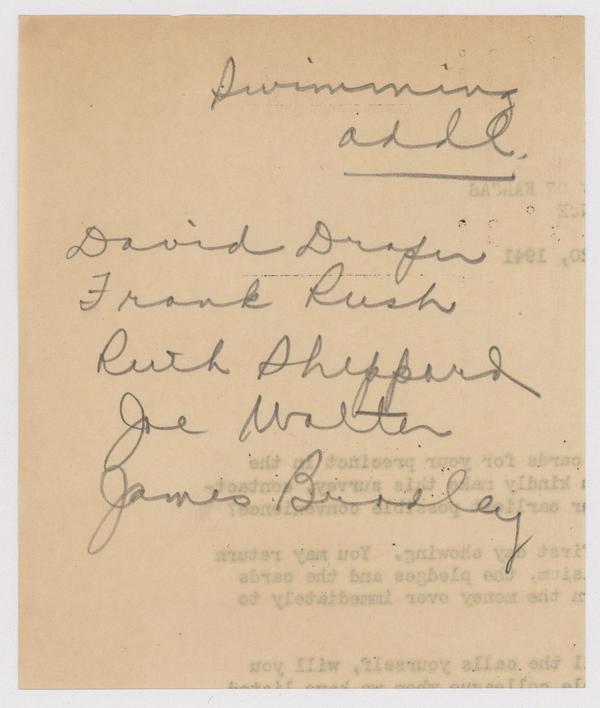 Swimming
addl.
David Draper
Frank Rush
Ruth Sheppard
Joe Walter
James Bradley
OF KANSAS
20, 1941
cards for your precinct in the
kindly make this survey, contact-
earliest possible convenience?
first day showing. You may return
the pledges and the cards
the money over immediately to
the calls yourself, will you
colleague whom we have listed